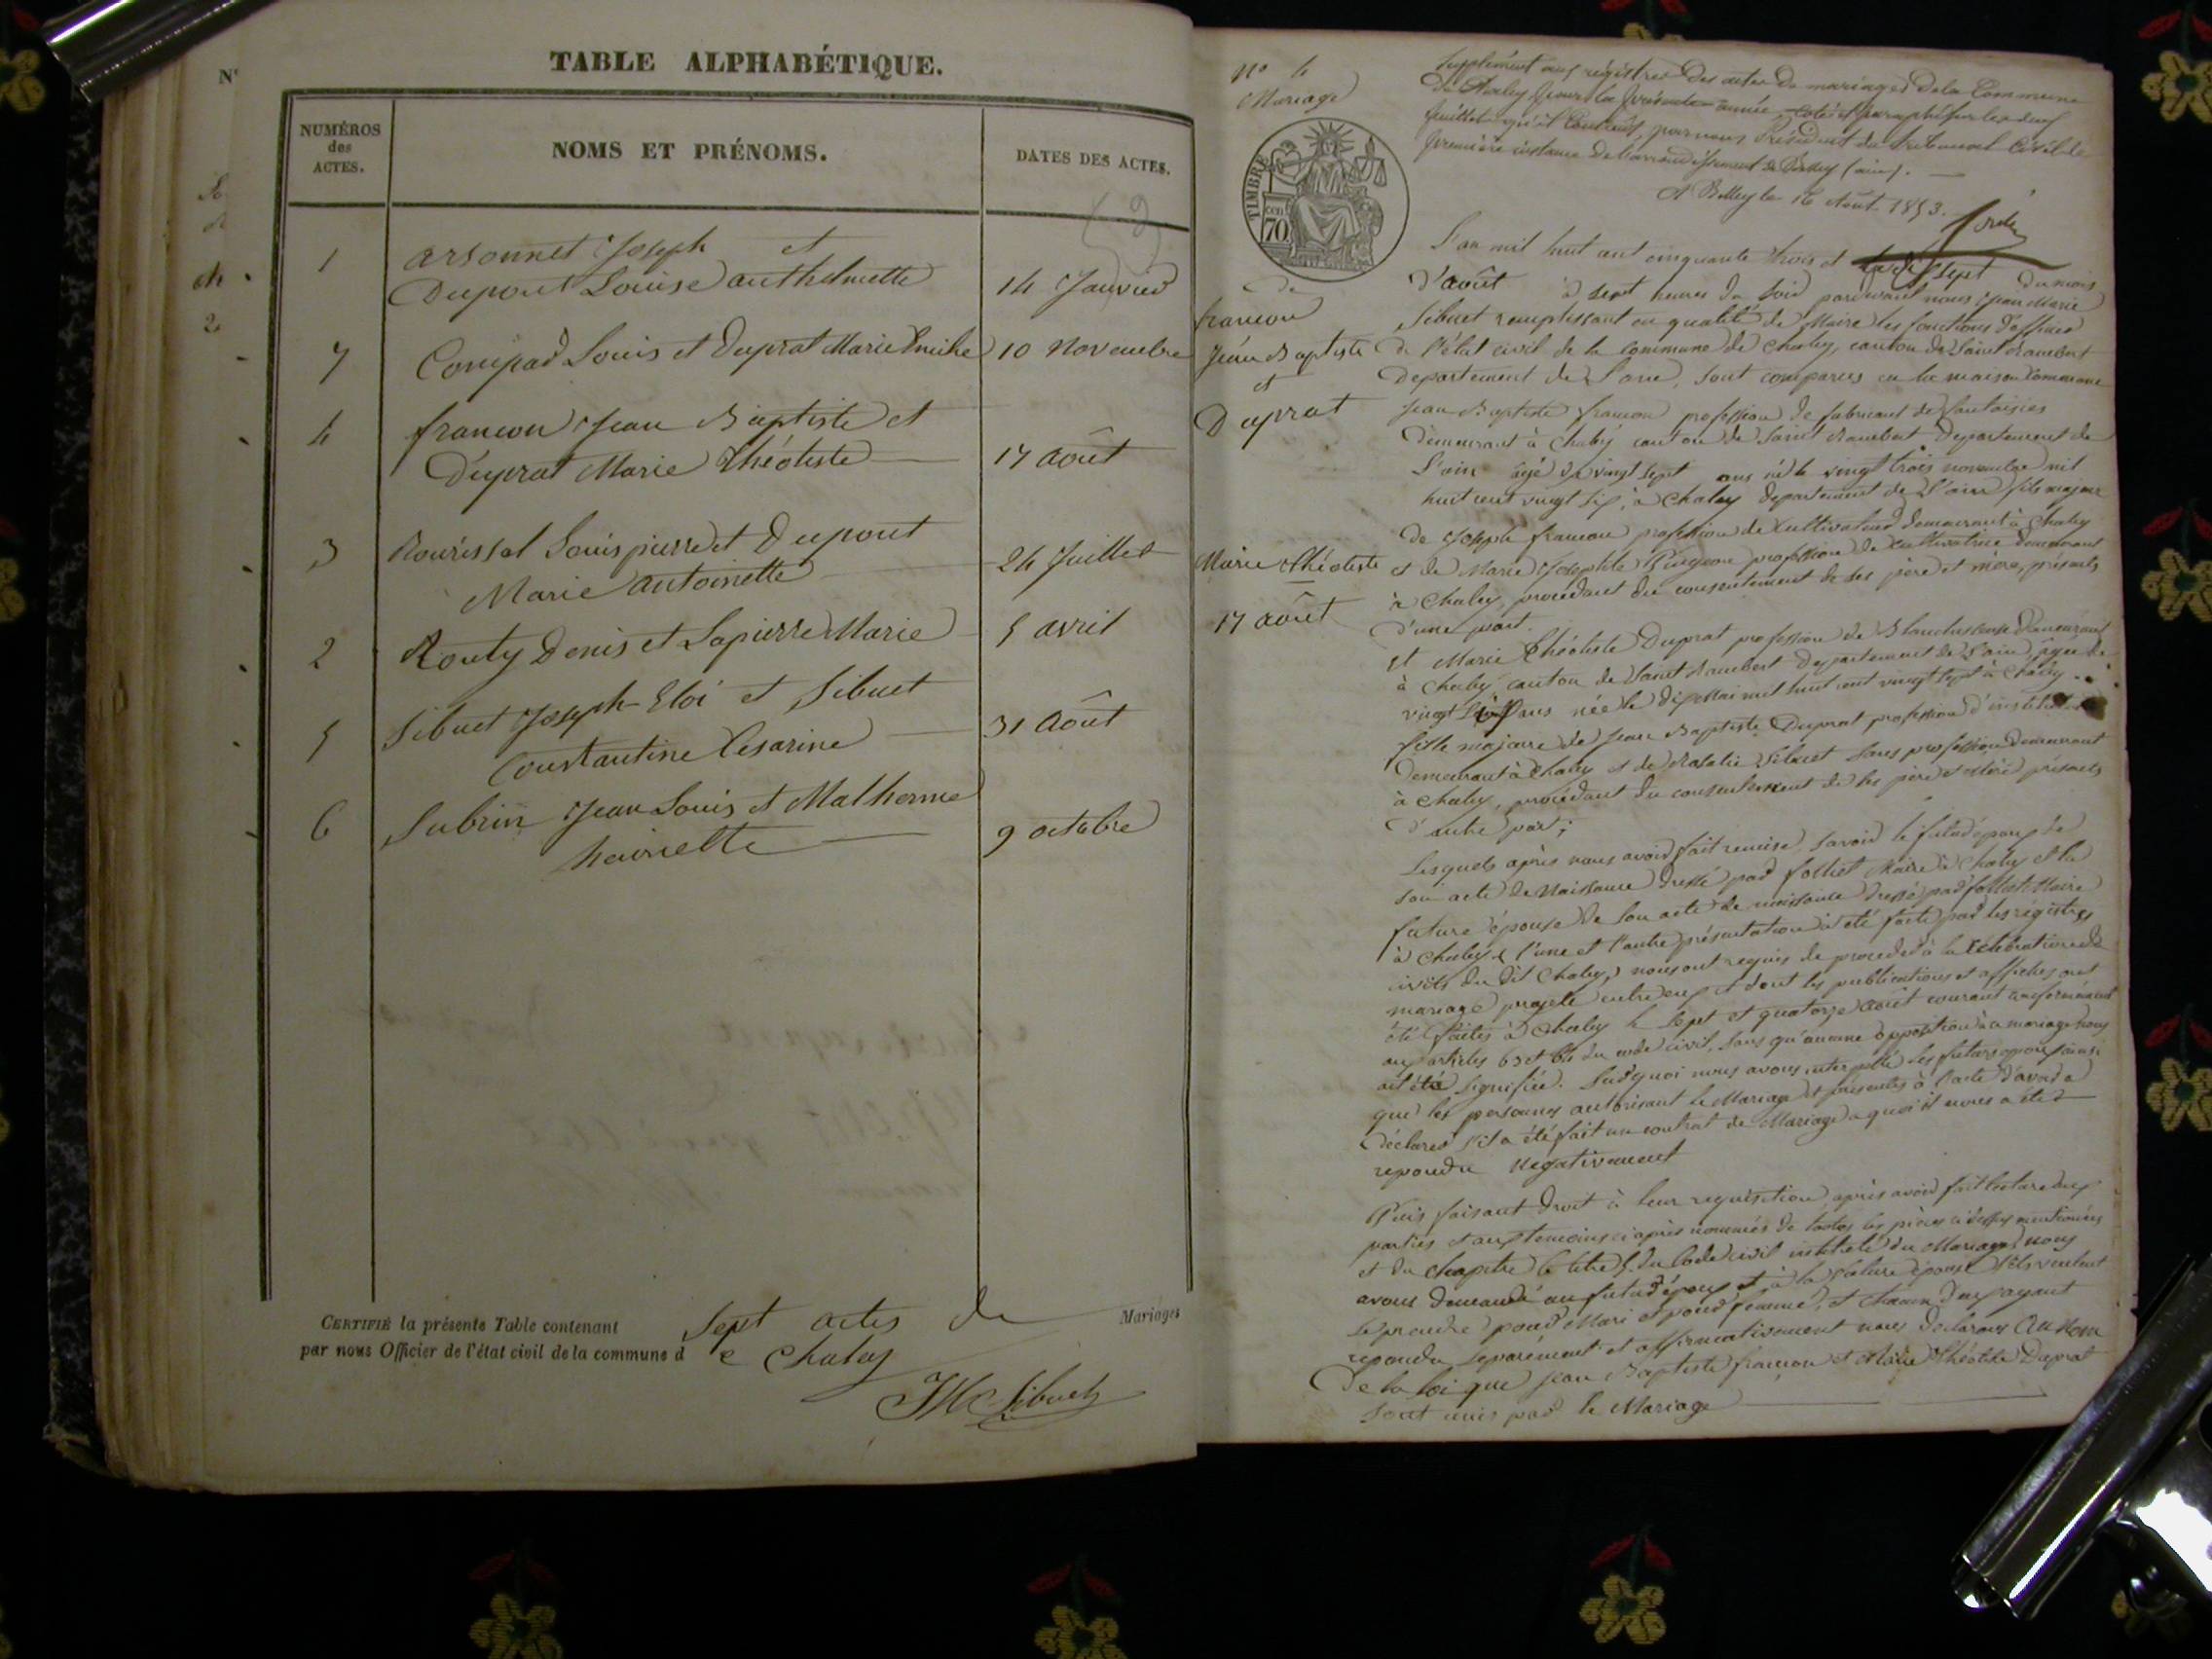 TABLE ALPHABÉTIQUE.
NUMÉROS des ACTES.
NOMS ET PRÉNOMS.
DATES DES ACTES.
53
1 arsonnet Joseph et
Dupont Louise anthelmette 14 Janvier
7 Compad Louis et Duprat Marie Emilie 10 Novembre
4 françon Jean Baptiste et
Duprat Marie Théotiste 17 août
3 Rourissat Louis pierre et Dupont
Marie antoinette 24 Juillet
2 Routy Denis et Lapierre Marie 5 avril
5 Sibuet Joseph Eloi et Sibuet
Constantine Cesarine 31 Août
6 Subrin Jean Louis et Malherme
henriette 9 octobre
CERTIFIÉ la présente Table contenant Sept actes de Mariages
par nous Officier de l'état civil de la commune de Chaley
JM Sibuet
No 4
Mariage
TIMBRE
CEN. 70
de
françon
Jean Baptiste
et
Duprat
Marie Théotiste
17 août
Suplément aux régistres des actes de mariages de la Commune
de Chaley pour la présente année, coté et paraphé sur les deux
feuillets qu'il contient, par nous Président du tribunal Civil de
première instance de l'arrondissement de Belley (ain).
A Belley le 16 Août 1853.
L'an mil huit cent cinquante trois et le dix sept du mois
d'août à sept heures du soir pardevant nous Jean Marie
Sibuet remplissant en qualité de Maire les fonctions d'officier
de l'état civil de la commune de Chaley, canton de Saint Rambert
departement de L'ain, sont comparus en la maison Commune
Jean Baptiste françon profession de fabricant de fantaisies
demeurant à Chaley canton de Saint Rambert Departement de
L'ain agé de vingt sept ans né le vingt trois novembre mil
huit cent vingt six, à Chaley departement de L'ain fils majeur
de Joseph françon profession de cultivateur demeurant à Chaley
et de Marie Josephte profession de cultivatrice demeurant
à Chaley, procédant du consentement de ses père et mère, présents
d'une part.
Et Marie Théotiste Duprat profession de Blanchisseuse Demeurant
à Chaley, canton de Saint Rambert Departement de L'ain, agée de
vingt six ans née le dix mai mil huit cent vingt sept à Chaley
fille majeure de Jean Baptiste Duprat profession d'instituteur
demeurant à Chaley et de Natalie Sibuet sans profession demeurant
à Chaley, procédant du consentement de ses père et mère présents
d'autre part;
Lesquels après nous avoir fait remise, savoir le futur époux de
son acte de Naissance dressé par follict Maire à Chaley et la
future épouse de son acte de naissance dressé par follict Maire
à Chaley (l'une et l'autre présentation a été faite par les régistres
civils du dit Chaley) nous ont requis de procéder à la célébration du
mariage projeté entre eux et dont les publications et affiches ont
été faites à Chaley le sept et quatorze août courant conformément
aux articles 63 et 64 du code civil, sans qu'aucune opposition à ce mariage nous
ait été signifiée. Sur quoi nous avons interpellé les futurs époux ainsi
que les personnes autorisant le Mariage et présentes à l'acte d'avoir à
déclarer s'il a été fait un contrat de Mariage a quoi il nous a été
repondu négativement
Puis faisant droit à leur requisition, après avoir fait lecture aux
parties et aux temoins ci après nommés de toutes les pièces ci dessus mentionnées
et du chapitre 6 titre 5 du Code civil intitulé du Mariage, nous
avons demandé au futur époux et à la future épouse s'ils veulent
se prendre pour Mari et pour femme, et chacun d'eux ayant
repondu separément et affirmativement nous déclarons Au Nom
de la loi que Jean Baptiste françon et Marie Théotiste Duprat
sont unis par le Mariage